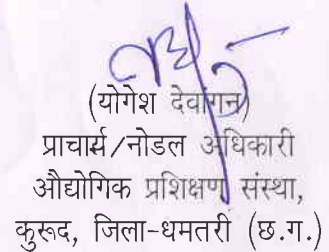 (योगेश देवांगन)
प्राचार्य/नोडल अधिकारी
औद्योगिक प्रशिक्षण संस्था,
कुरूद, जिला-धमतरी (छ.ग.)